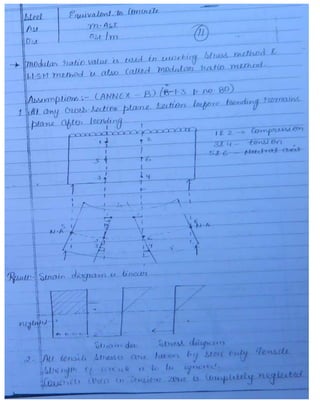 Steel Equivalent to Concrete
Ast m-Ast
σst σst/m
11
→ Modular ratio value is used in working stress method &
WSM method is also called modular ratio method.
Assumptions:- (ANNEX - B) (B-1.3 p. no. 80)
1. At any cross section plane section before bending remains
plane after bending
1 2
5 6
3 4
1 & 2 → Compression
3 & 4 → tension
5 & 6 → Neutral axis
N.A N.A
Result:- Strain diagram is linear
neglected
Strain dia Stress diagram
2. All tensile stresses are taken by steel only. Tensile
strength of is to be ignored
Concrete area in tension zone is completely neglected.